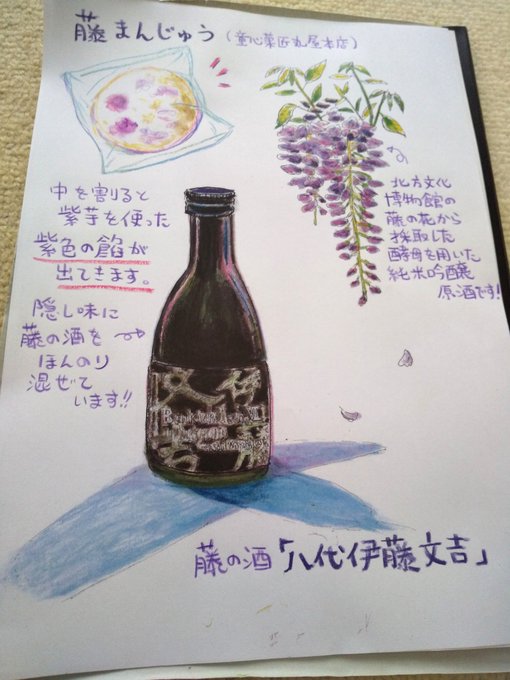 藤まんじゅう(童心菓匠丸屋本店)
中を割ると
紫芋を使った
紫色の餡が
出てきます。
隠し味に
藤の酒を
ほんのり
混ぜて
います!!
北方文化
博物館の
藤の花から
採取した
酵母を用いた
純米吟醸
原酒です!
伊
文
吉
藤の酒「八代伊藤文吉」